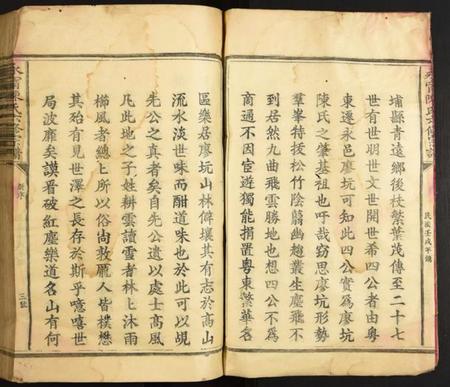 埔縣青遠鄉後枝繁葉茂傳至二十七
世有世明世文世開世希四公者由粵
東遷永邑廖坑可知此四公實爲廖坑
陳氏之肇基祖也吁哉窃思廖坑形勢
羣峯特拔松竹陰翳幽趣叢生塵飛不
到居然九曲飛雲勝地也想四公不爲
商通不因宦遊獨能捐置粵東繁華名
民國壬戌年鐫
區樂居廖坑山林僻壤其有志於高山
流水淡世味而酣道味也於此可以覘
先公之真者矣自先公遺以處士高風
凡此地之子姓耕雲讀雪者林上沐雨
櫛風者總上所以俗尚敦龐人皆樸懋
其殆有見世澤之長存於斯乎噫嘻世
局波靡矣謨看破紅塵樂道名山有何
三號